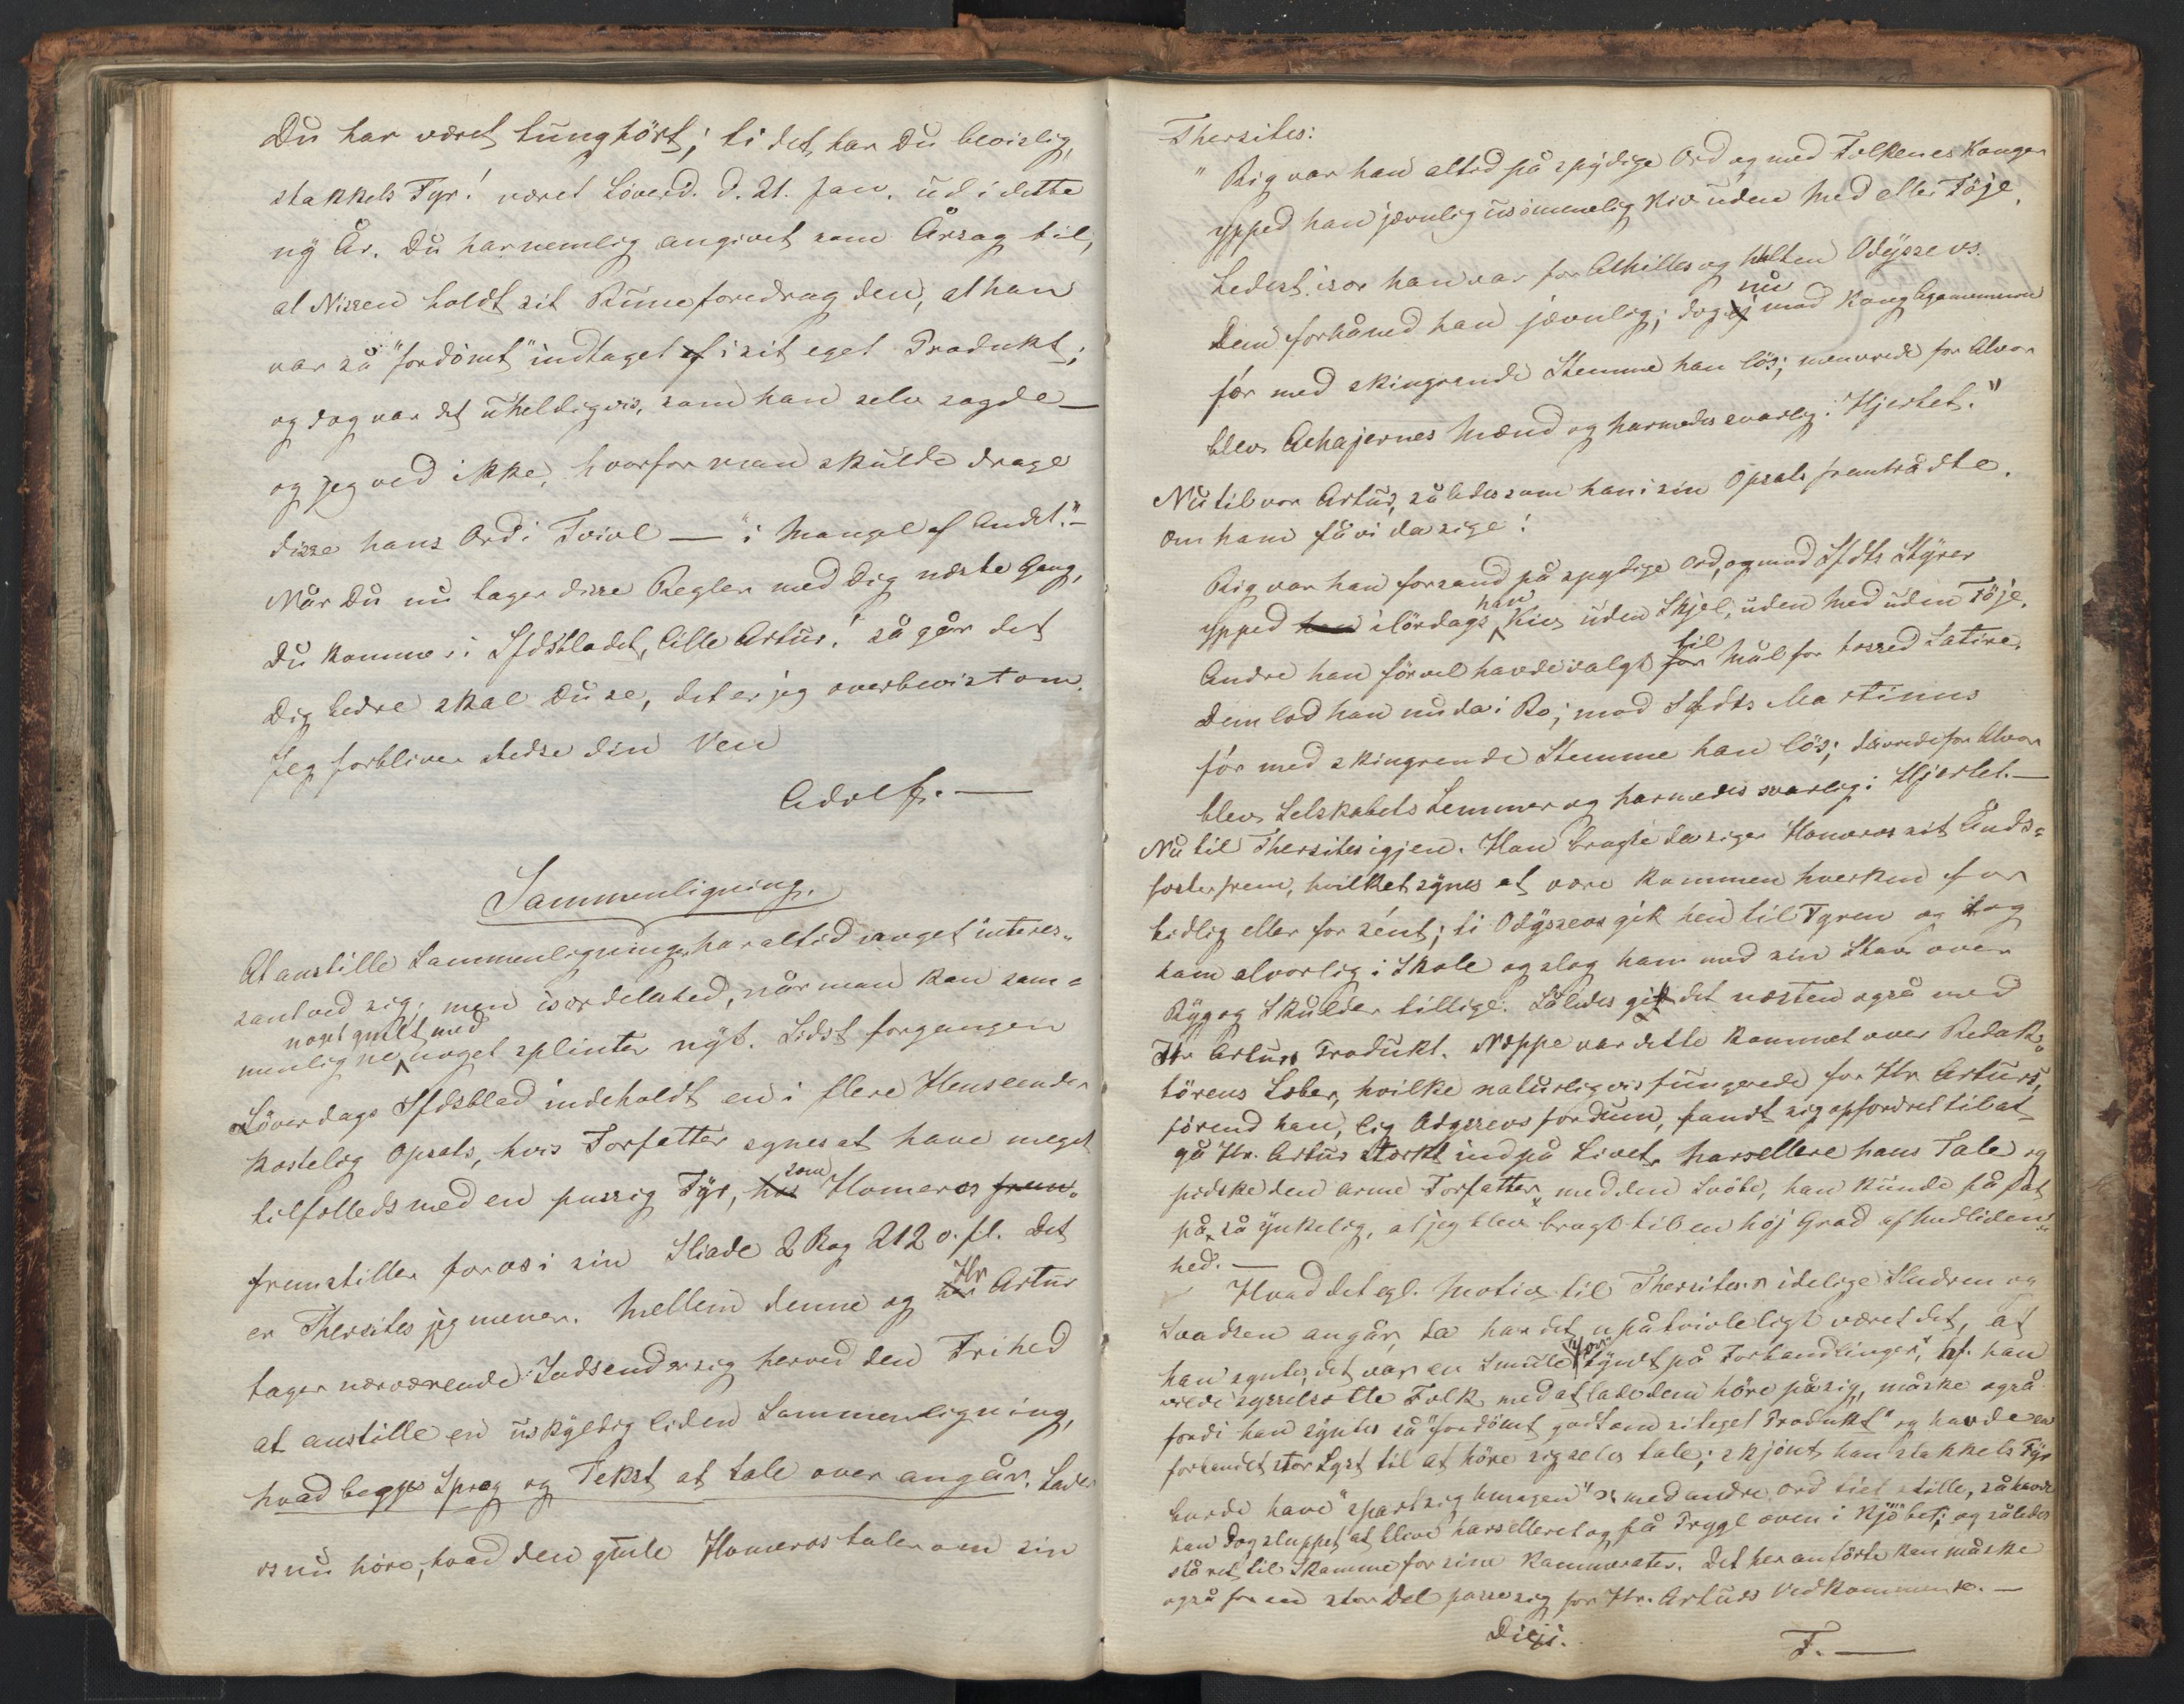 Du har været tunghört; ti det har Du bevislig,
stakkels Fyr! været Löverd. d. 21. Jan. ud i dette
ny År. Du har nemlig angivet som Årsag til,
at Nissen holdt sit Runeforedrag den, at han
var så "fordömt" indtaget i sit eget Produkt;
og dog var det uheldigvis, som han selv sagde —
og jeg ved ikke, hvorfor man skulde drage
disse hans Ord i Tvivl — "i Mangel af Andet." —
Når Du nu tager disse Regler med Dig næste Gang,
Du kommer i Sfdsbladet, lille Artur! så går det
Dig bedre skal Du se, det er jeg overbevist om.
Jeg forbliver stedse din Ven
Adolf. —
Sammenligning.
At anstille Sammenligninger har altid noget interes-
sant ved sig; men især delested, når man kan sam-
menligne noget gmlt med noget splinter nyt. Sidst forgangen
Löverdags Sfdsblad indeholdt en i flere Henseender
kostelig Opsats, hvis Forfatter synes at have meget
tilfælleds med en pussig Fyr, som Homeros frem-
fremstiller for os i sin Iliade 2 Bog 212 o. fl. Det
er Thersites jeg mener. Mellem denne og Hr Artur
tager nærværende Indsender sig herved den Frihed
at anstille en uskyldig liden Sammenligning,
hvad begges Sprog og Tekst at tale over angår. Lader
os nu höre, hvad den gmle Homeros taler om sin
Thersites:
"Rig var han altid på spydige Ord og mod Folkenes Konger
ypped han jævnlig usömmelig Kiv uden Med eller Föje.
Ledest især han var for Achilles og Helten Odysseus.
Dem forhåned han jævnlig; dog nu mod Kong Agamemnon
fór med skingrende Stemme han lös; men vrede for Alvor
blev Achajernes Mænd og harmedes svarlig i Hjertet."
Nu til vor Artur, således som han i sin Opsats fremtrådte.
Om ham få vi da sige:
Rig var han forsand på spydige Ord, og mod Sfdts Styrer
ypped ilördags han Kiv uden Skjel, uden Med uden Föje.
Andre han för vel havde valgt til Mål for tosset Satire.
Dem lod han nu da i Ro; mod Sfdts Martinus
fór med skingrende Stemme han lös; da vrede for Alvor
blev Selskabets Lemmer og harmedes svarlig i Hjertet. —
Nu til Thersites igjen. Han bragte da siger Homeros sit Ånds-
foster frem, hvilket synes at være kommen hverken for
tidlig eller for sént; ti Odysseus gik hen til Fyren og tog
ham alvorlig i Skole og slog ham med sin Stav over
Ryg og Skulder tillige. Således gik det næsten også med
Hr Arturs Produkt. Neppe var dette kommet over Redak-
törens Læber, hvilke naturligvis fungerede for Hr Arturs,
förend han, lig Odysseus fordum, fandt sig opfordret til at
gå Hr. Artur stærkt ind på Livet, harsellere hans Tale og
pidske den arme Forfatter, med den Svöbe, han kunde få fat
på, så ynkelig, at jeg blev bragt til en höj Grad af Medliden-
hed. —
Hvad det egl. Motiv til Thersites's idelige Sladren og
Svadsen angår, da har det upåtvivleligt været det, at
han syntes, det var en Smule "for" tyndt på Forhandlinger", hf. han
vilde sysselsætte Folk med at lade dem höre på sig, måske også
fordi han syntes så "fordömt godt om sit eget Produkt" og havde en
forbandet stor Lyst til at höre sig selv tale; skjönt han stakkels Fyr
burde have "spart sig Umagen" ɔ: med andre ord tiet stille, så havde
han dog sluppet at blive harselleret og få Prygl oven i Kjöbet; og således
stå ret til Skamme for sine Kammerater. Det her anförte kan måske
også for en stor Del passe sig for Hr. Arturs Vedkommende. —
Dixi.
F. —